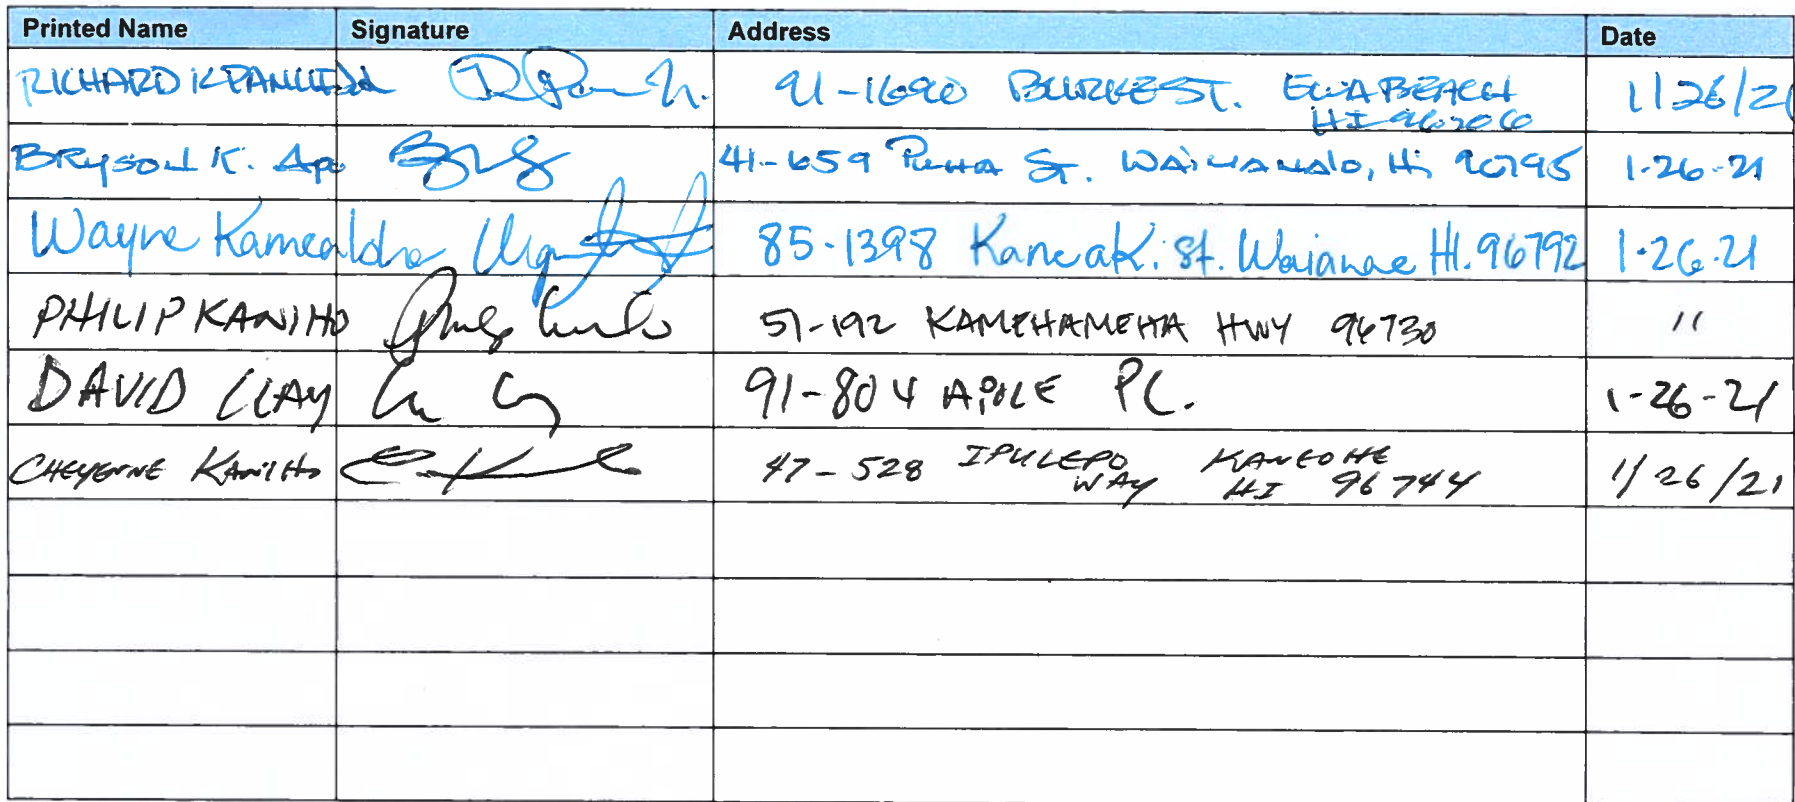 Printed Name Signature Address Date
RICHARD K 91-1690 BURKE ST. EWA BEACH 1/26/21
HI 96706
BRYSON K. Apo 41-659 ST. WAIMANALO, HI 96795 1-26-21
Wayne Kamealoha 85-1398 Kaneaki St. Waianae HI. 96792 1-26-21
PHILIP KANIHO 51-192 KAMEHAMEHA HWY 96730 "
DAVID CLAY 91-804 PL. 1-26-21
CHEYENNE KANIHO 47-528 IPULEPO KANEOHE 1/26/21
WAY HI 96744